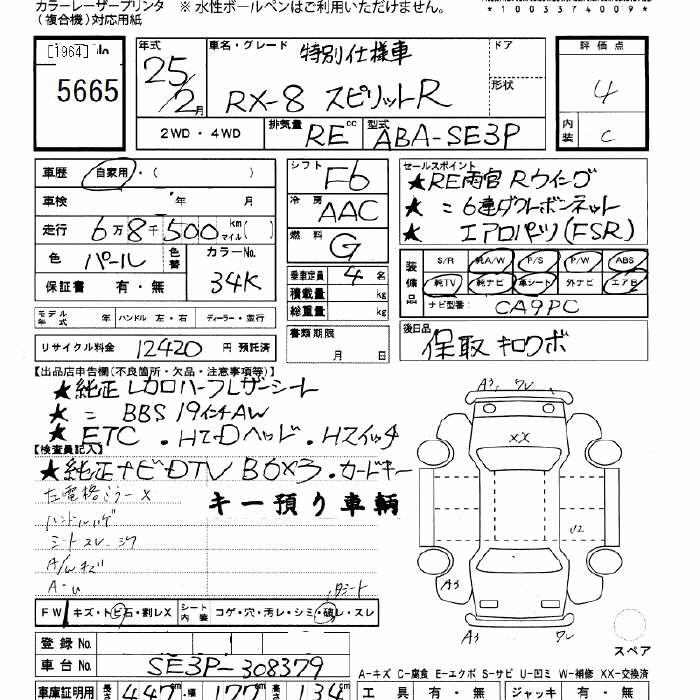 カラーレーザープリンタ ※ 水性ボールペンはご利用いただけません。
(複合機)対応用紙
*1003374009*
[1964]
5665
年式 25/2月
車名・グレード 特別仕様車
RX-8 スピリットR
ドア
形状
評価点 4
内装 C
2WD・4WD
排気量 RE cc
型式 ABA-SE3P
車歴 自家用・( )
車検 年 月
走行 6万8千500 km(マイル)
色 パール 色替 カラーNo. 34K
保証書 有・無
シフト F6
冷房 AAC
燃料 G
乗車定員 4名
積載量 kg
総重量 kg
セールスポイント
★RE雨宮 Rウイング
★ 〃 6連ダクトボンネット
★ エアロパーツ(FSR)
装備品 S/R 純A/W P/S P/W ABS
純TV 純ナビ 革シート 外ナビ エアB
ナビ型番: CA9PC
モデル年式 年 ハンドル 左・右 ディーラー・並行
リサイクル料金 12420 円 預託済
書類期限
月 日
後日品
保取 キロクボ
【出品店申告欄(不良箇所・欠品・注意事項等)】
★純正レカロハーフレザーシート
★ 〃 BBS 19インチAW
★ ETC・HIDヘッド・Hスイッチ
【検査員記入】
★純正ナビDTV BOX3・カードキー
キー預り車輌
左電格ミラーX
シートスレ・シワ
A/Wキズ
A・U
FW キズ・トビ石・割レX
シート内装 コゲ・穴・汚レ・シミ・破レ・スレ
登録No.
車台No. SE3P-308379
車庫証明用 長さ 447 幅 177 高さ 134
A3 ワレ
XX
U2
A3
A3 ワレ
スペア
A-キズ C-腐食 E-エクボ S-サビ U-凹ミ W-補修 XX-交換済
工具 有・無 ジャッキ 有・無